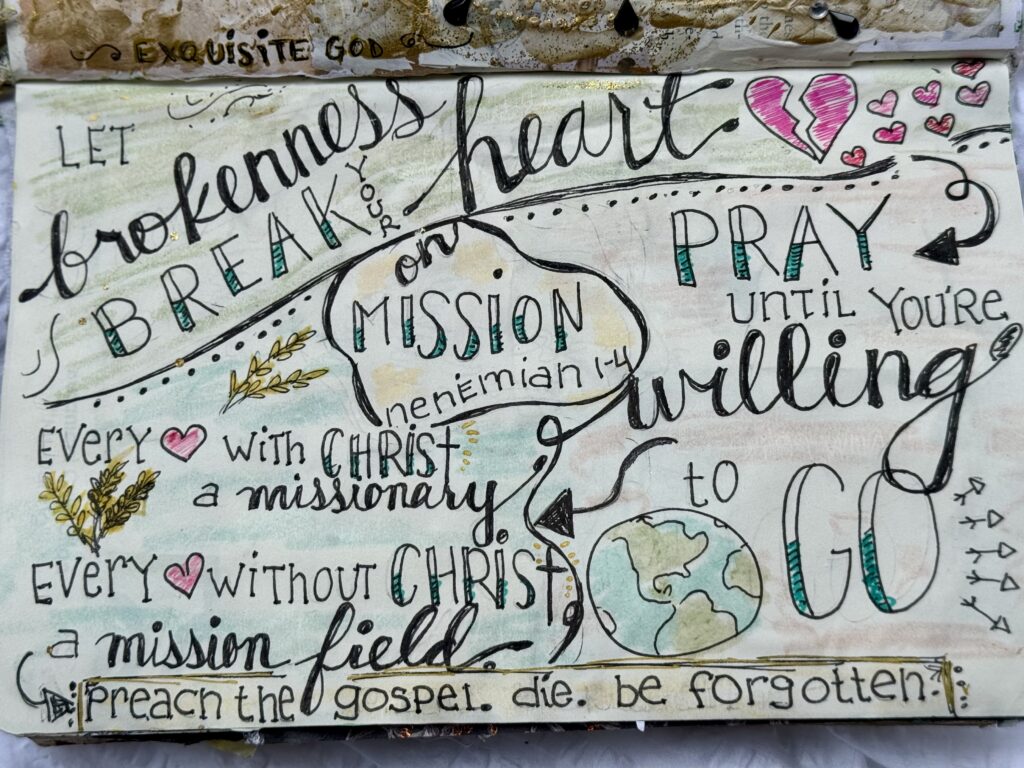 EXQUISITE GOD
LET
brokenness
BREAK YOUR
heart
on
MISSION
nehemiah 1-4
PRAY
UNTIL YOU'RE
willing
to GO
EVERY with CHRIST
a missionary
EVERY without CHRIST
a mission field.
preach the gospel. die. be forgotten.